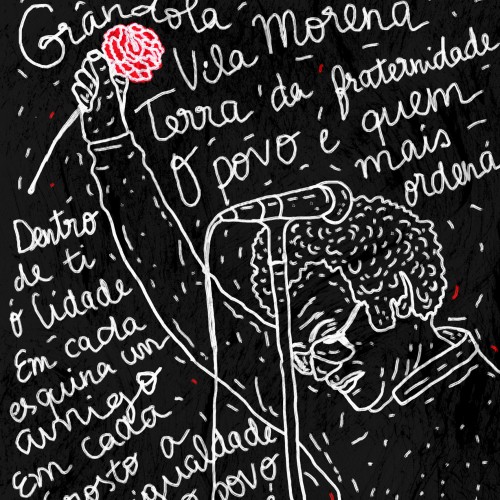 Grândola
Vila Morena
Terra da fraternidade
O povo é quem
mais
ordena
Dentro
de ti
ó Cidade
Em cada
esquina um
amigo
Em cada
rosto a
igualdade
O povo